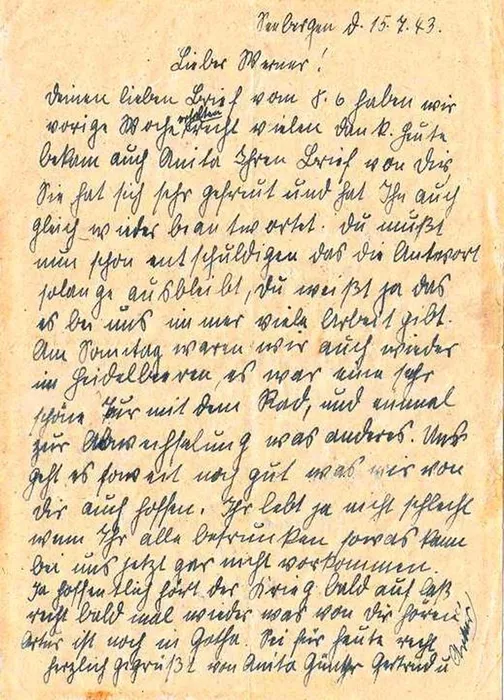 Seebergen d. 15.7.43.
Lieber Werner!
Deinen lieben Brief vom 8.6 haben wir
vorige Woche erhalten recht vielen Dank. Heute
bekam auch Anita Ihren Brief von Dir,
Sie hat sich sehr gefreut und hat Ihn auch
gleich wieder beantwortet. Du mußt
nun schon entschuldigen das die Antwort
solange ausbleibt, Du weißt ja das
es bei uns immer viele Arbeit gibt.
Am Sonntag waren wir auch wieder
in Heidelbeeren, es war eine sehr
schöne Tur mit dem Rad, und einmal
zur Abwechselung was anderes. Uns
geht es soweit noch gut was wir von
Dir auch hoffen. Ihr lebt ja nicht schlecht
wenn Ihr alle betrunken sowas kann
bei uns jetzt gar nicht vorkommen.
Ja hoffentlich hört der Krieg bald auf laß
recht bald mal wieder was von Dir hören
Artur ist noch in Gotha. Sei für heute recht
herzlich gegrüßt von Anita Günther Gertrud u